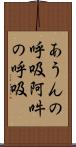 あうんの
呼吸阿吽
の呼吸